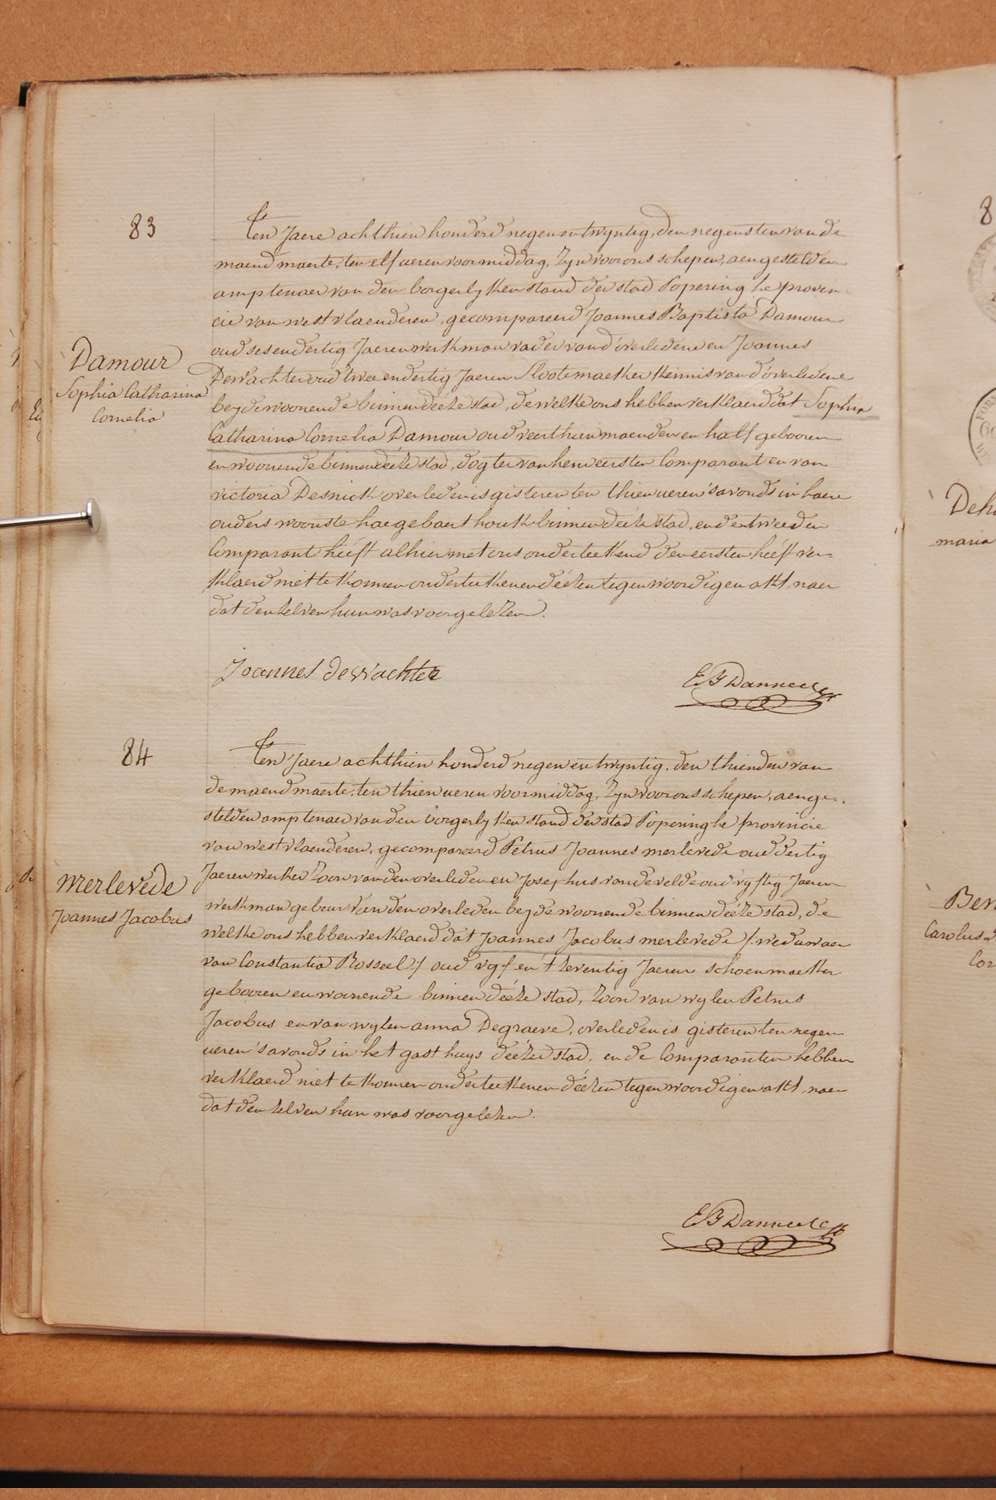 83
Damour
Sophia Catharina
Cornelia
Ten Jaere achthien honderd negen en twyntig, den negensten van de
maend maerte, ten elf ueren voormiddag, Zyn voor ons schepen, aengestelden
amptenaer van den borgerlyken stand der stad Poperinghe provin-
cie van westvlaenderen, gecompareerd Joannes Baptista Damour
oud ses en dertig Jaeren werkman vader van d'overledene en Joannes
Dewachter oud twee en dertig Jaeren Slootemaeker kennis van d'overledene
beyde woonende binnen deéze stad, de welke ons hebben verklaerd dat Sophia
Catharina Cornelia Damour oud veerthien maenden en half gebooren
en woonende binnen deéze stad, dogter van hem eersten Comparant en van
victoria Desnick overleden is gisteren ten thien ueren 's avonds in haere
ouders wooniste haegebaert houk binnen deéze stad, en den tweeden
Comparant heéft alhier met ons onderteekend den eersten heéft ver-
klaerd niet te konnen onderteekenen deézen tegenwoordigen akt, naer
dat den zelven hun was voorgelezen.
Joannes dewachter
E B Danneel
84
merlevede
Joannes Jacobus
Ten Jaere achthien honderd negen en twyntig, den thienden van
de maend maerte, ten thien ueren voormiddag, Zyn voor ons schepen, aenge-
stelden amptenaer van den borgerlyken stand der stad Poperinghe provincie
van westvlaenderen, gecompareerd Petrus Joannes merlevede oud dertig
Jaeren werker Zoon van den overleden en Josephus vandevelde oud vyftig Jaeren
werkman gebuer van den overleden beyde woonende binnen deéze stad, de
welke ons hebben verklaerd dat Joannes Jacobus merlevede / wedewaer
van Constantia Rosseel / oud vyf en 't zeventig Jaeren schoenmaeker
gebooren en woonende binnen deéze stad, Zoon van wylen Petrus
Jacobus en van wylen anna Degraeve, overleden is gisteren ten negen
ueren 's avonds in het gasthuys deézer stad, en de Comparanten hebben
verklaerd niet te konnen onderteekenen deézen tegenwoordigen akt, naer
dat den zelven hun was voorgelezen.
E B Danneel
8
Deh
maria
Ber
Carolus
Cor